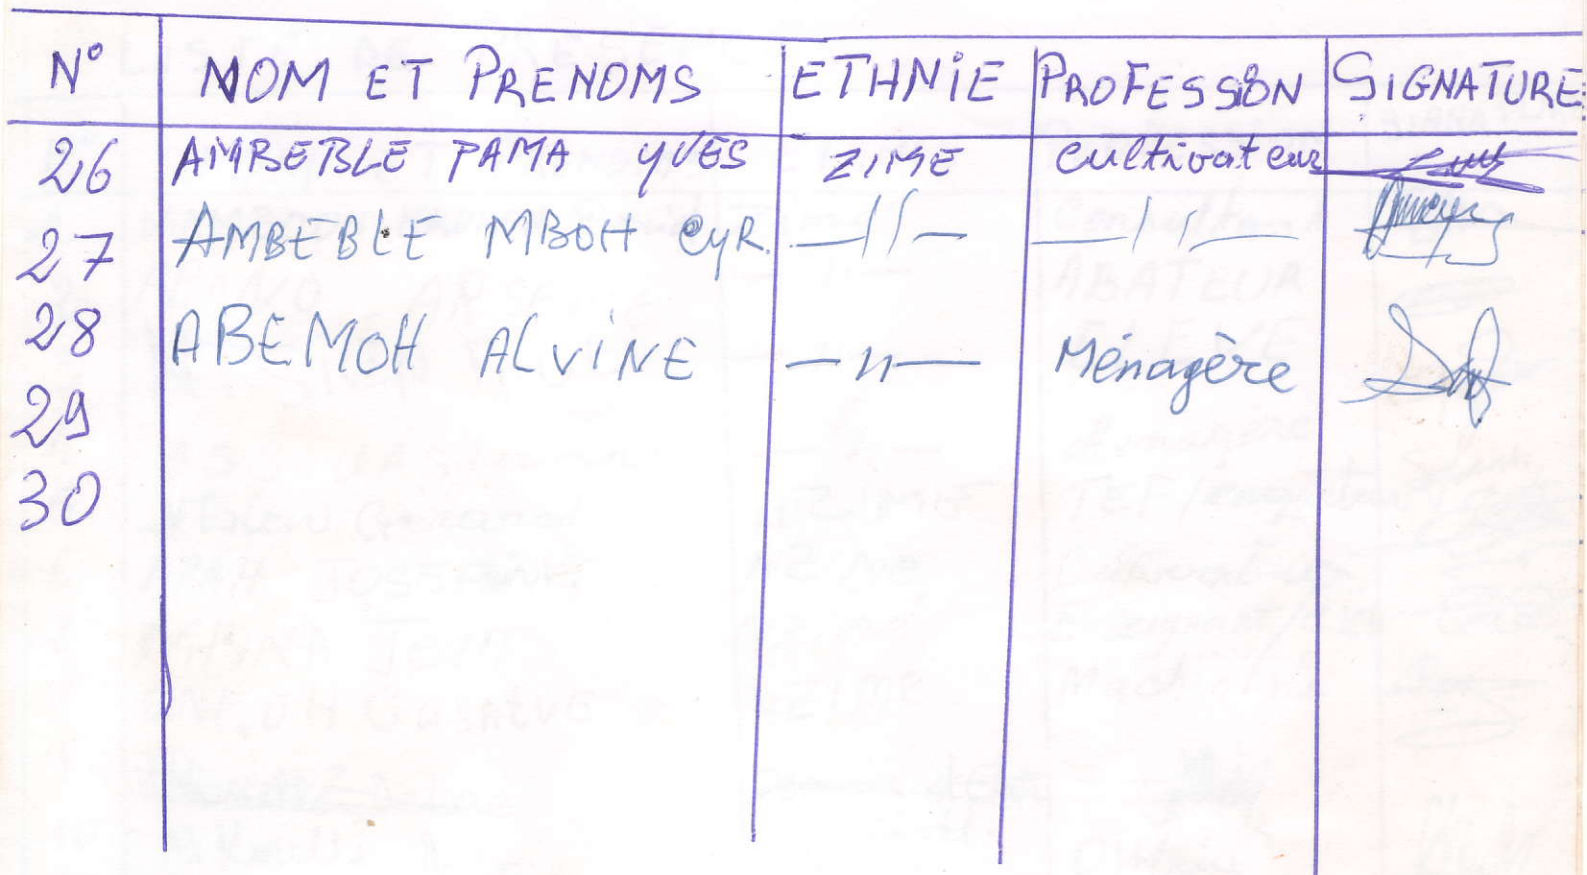 N° NOM ET PRENOMS ETHNIE PROFESSION SIGNATURE
26 AMBEBLE PAMA YVES ZIME Cultivateur
27 AMBEBLE MBOH CYR. —//— —//—
28 ABEMOH ALVINE —//— Ménagère
29
30